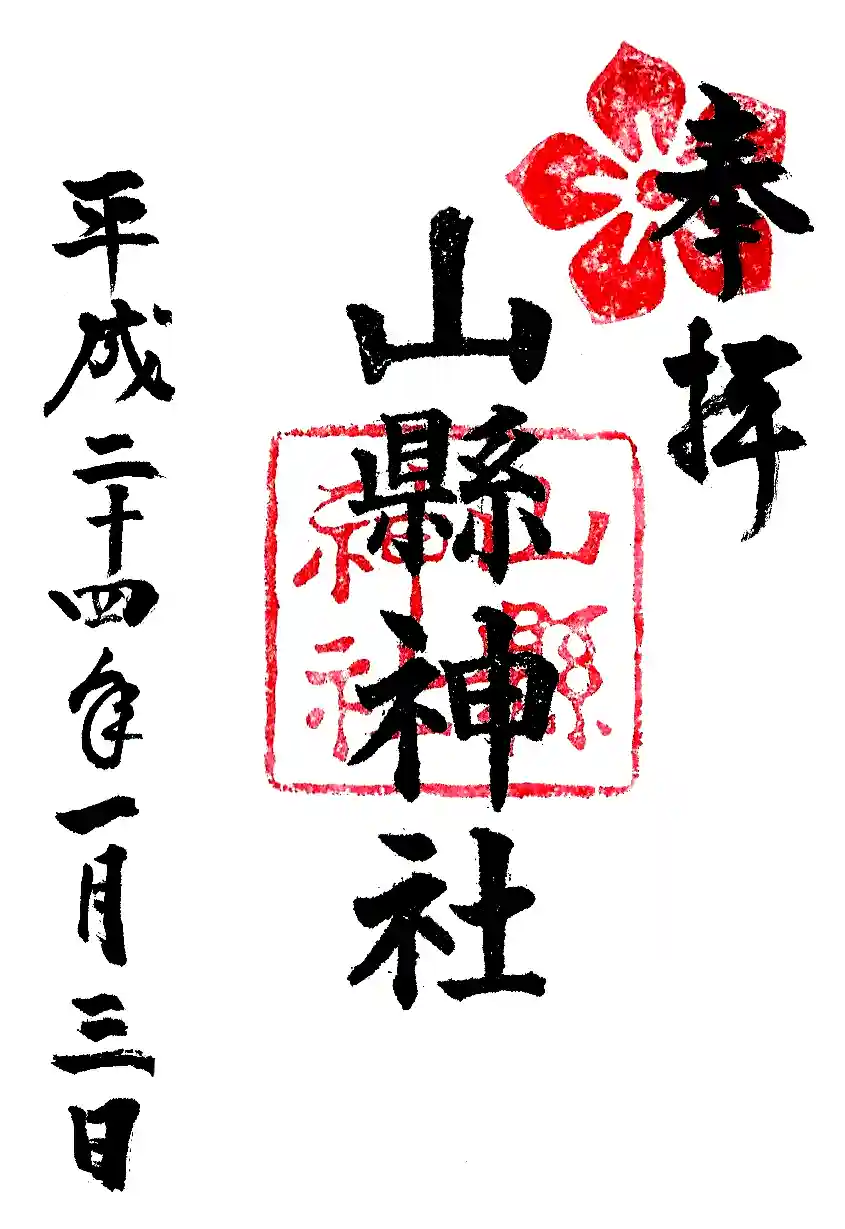 奉拝
山縣神社
山縣
神社
平成二十四年一月三日